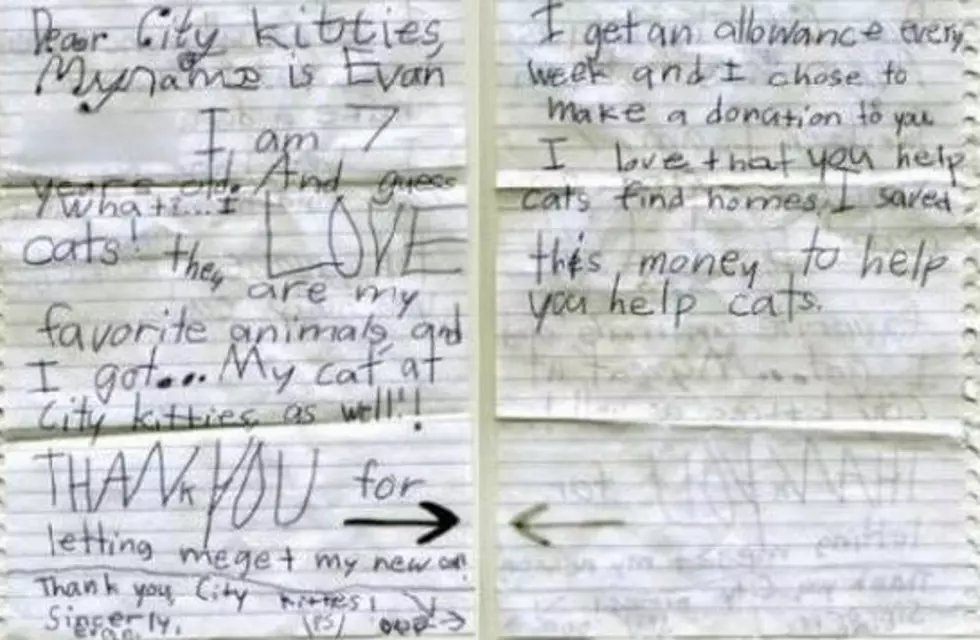 Dear City kitties,
My name is Evan
I am 7
years old. And guess
what... I LOVE
cats! they
are my
favorite animals, and
I got... My cat at
City kitties, as well!!
THANK YOU for
letting me get my new
Thank you, City kitties!
Sincerly, (PS)
evan
I get an allowance every
week and I chose to
make a donation to you
I love that you help
cats find homes. I saved
this money to help
you help cats.